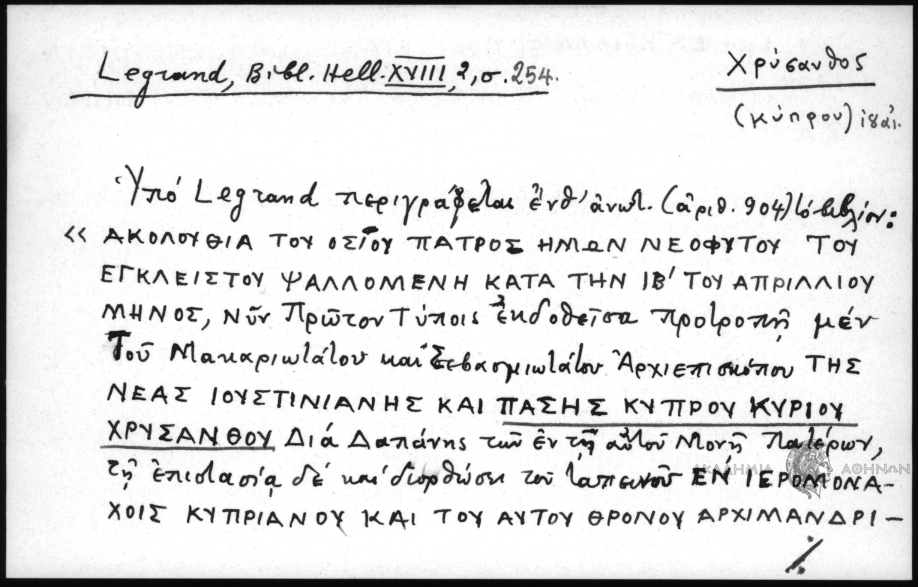 Legrand, Bibl. Hell. XVIII, 2, σ. 254.
Χρύσανθος
(Κύπρου) ιβ΄
Ὑπό Legrand περιγράφεται ἔνθ' ἀνωτ. (ἀριθ. 904) τό βιβλίον:
« ΑΚΟΛΟΥΘΙΑ ΤΟΥ ΟΣΙΟΥ ΠΑΤΡΟΣ ΗΜΩΝ ΝΕΟΦΥΤΟΥ ΤΟΥ
ΕΓΚΛΕΙΣΤΟΥ ΨΑΛΛΟΜΕΝΗ ΚΑΤΑ ΤΗΝ ΙΒ' ΤΟΥ ΑΠΡΙΛΛΙΟΥ
ΜΗΝΟΣ, Νῦν Πρῶτον Τύποις ἐκδοθεῖσα προτροπῇ μέν
Τοῦ Μακαριωτάτου καί Σεβασμιωτάτου Ἀρχιεπισκόπου ΤΗΣ
ΝΕΑΣ ΙΟΥΣΤΙΝΙΑΝΗΣ ΚΑΙ ΠΑΣΗΣ ΚΥΠΡΟΥ ΚΥΡΙΟΥ
ΧΡΥΣΑΝΘΟΥ Διά Δαπάνης τῶν ἐν τῇ αὐτοῦ Μονῇ Πατέρων,
τῇ ἐπιστασίᾳ δέ καί διορθώσει τοῦ ταπεινοῦ ΕΝ ΙΕΡΟΜΟΝΑ-
ΧΟΙΣ ΚΥΠΡΙΑΝΟΥ ΚΑΙ ΤΟΥ ΑΥΤΟΥ ΘΡΟΝΟΥ ΑΡΧΙΜΑΝΔΡΙ-
./.
ΑΚΑΔΗΜΙΑ ΑΘΗΝΩΝ